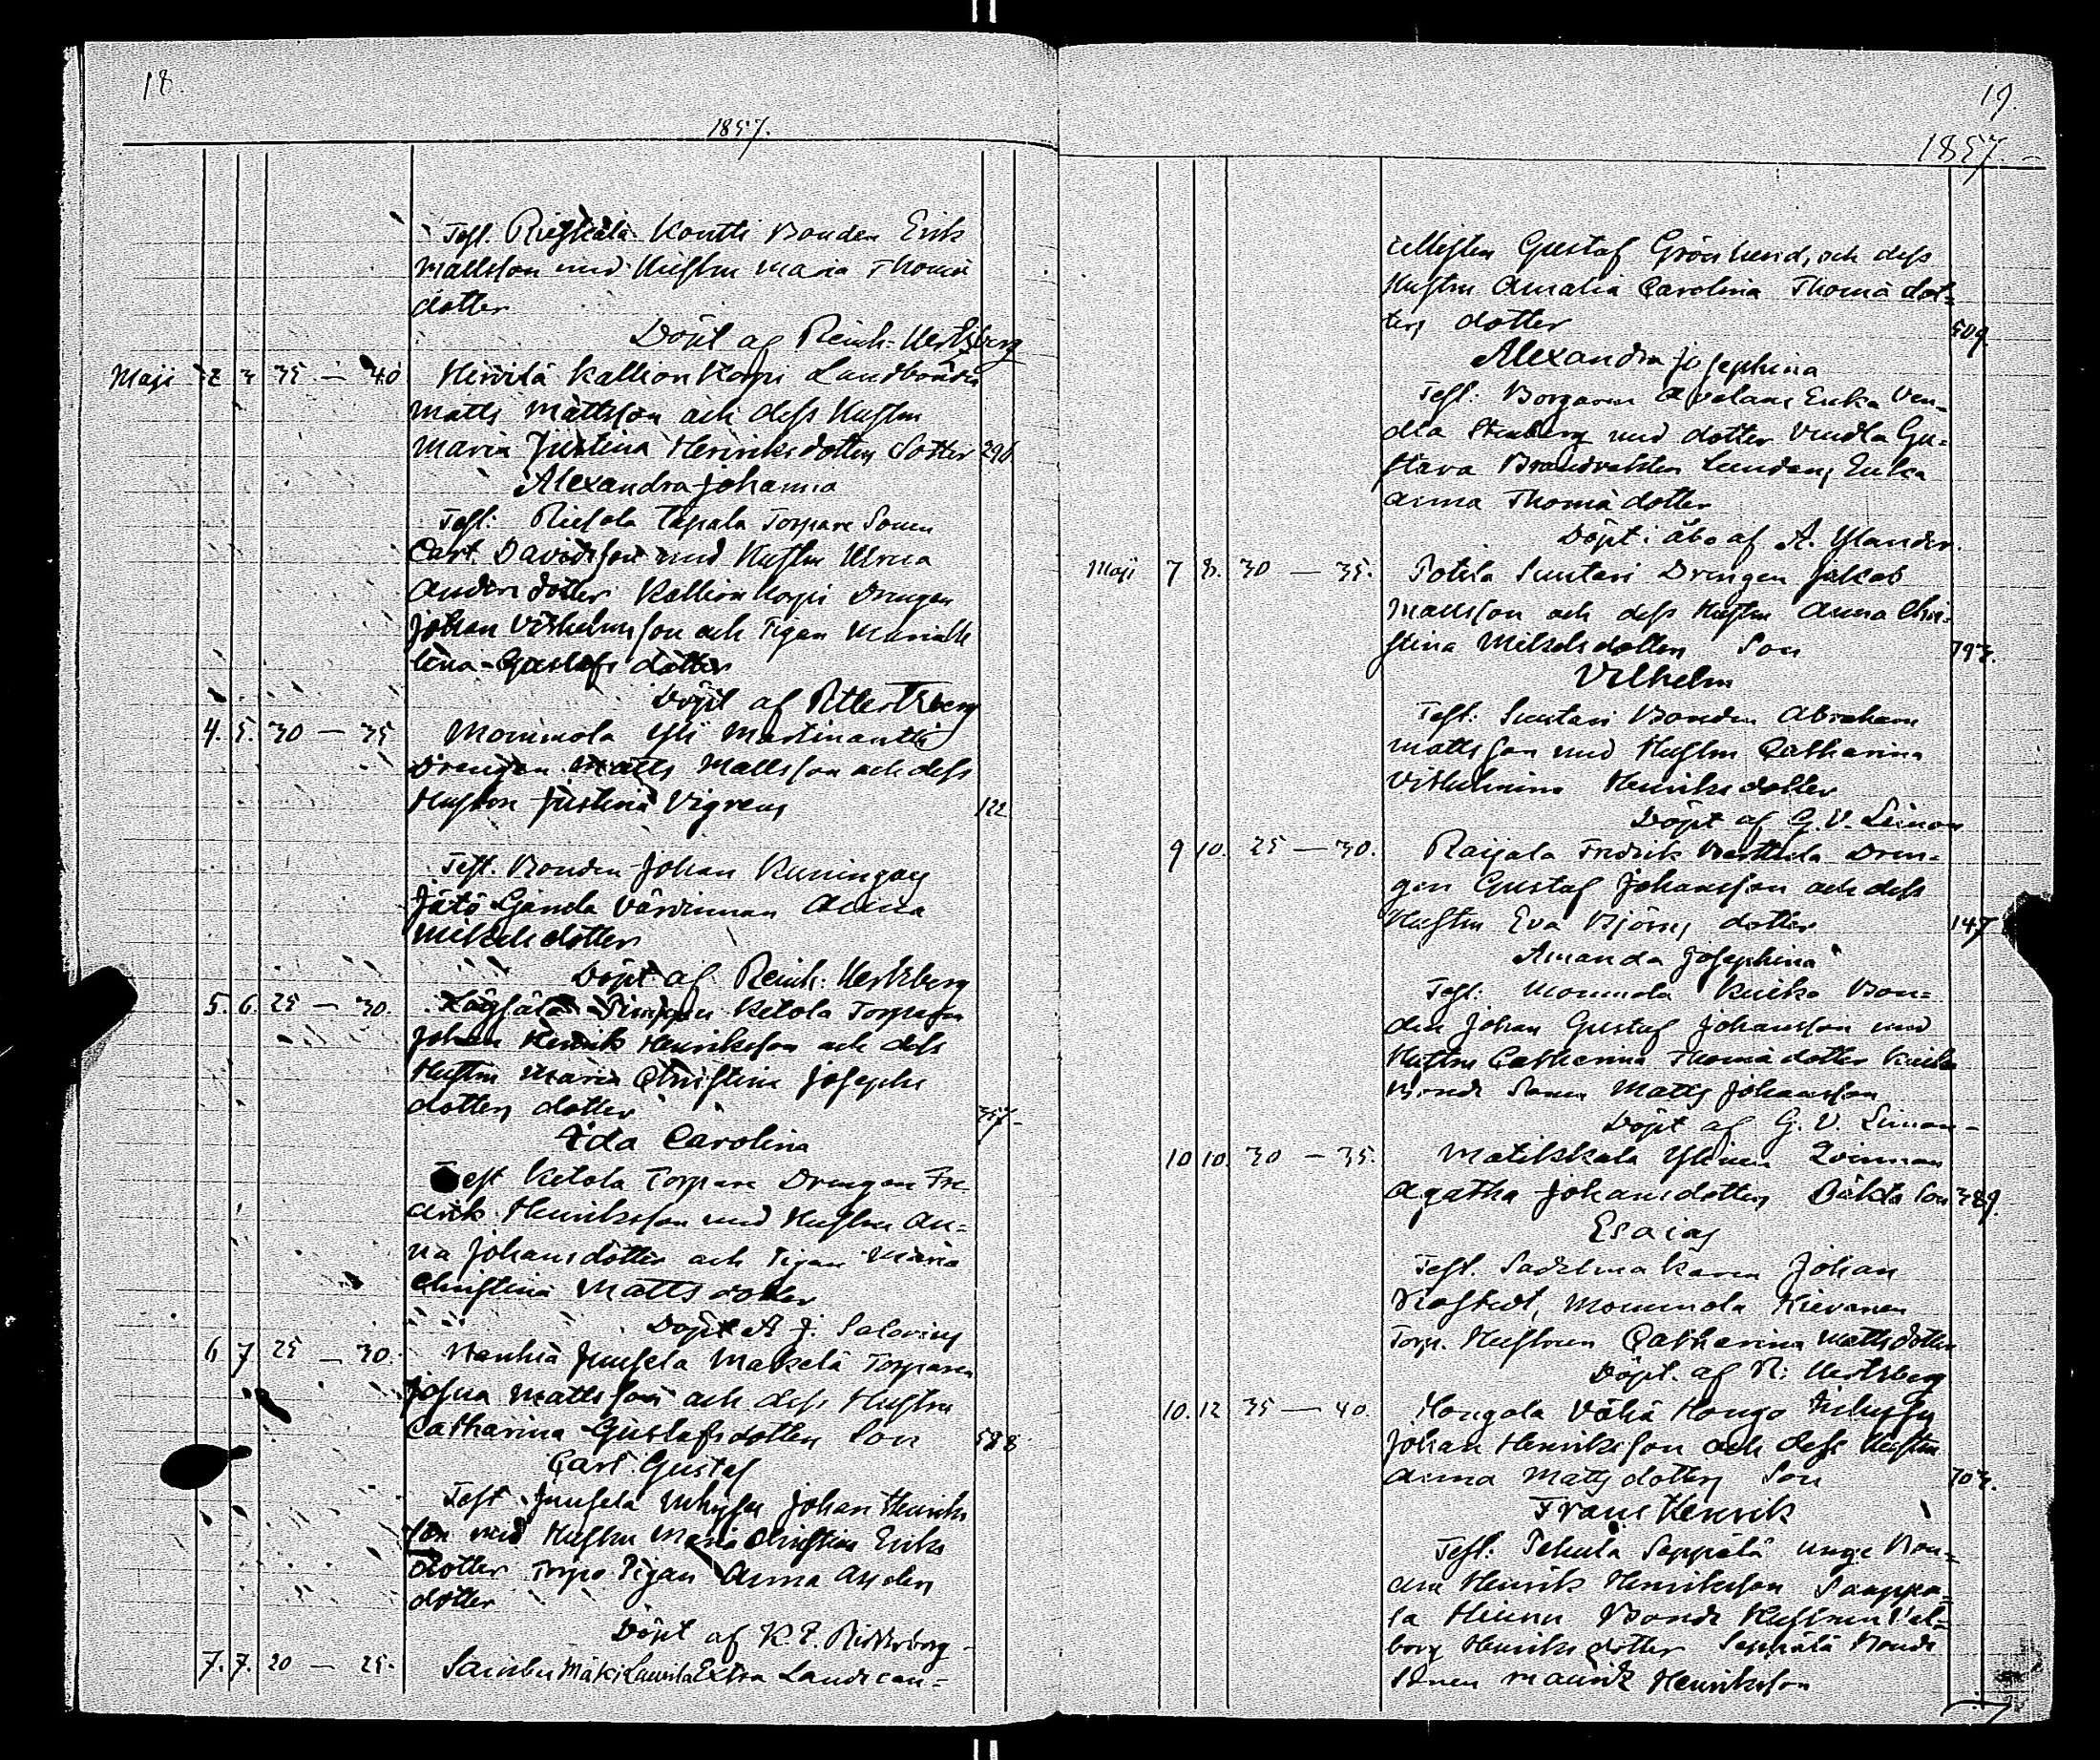 18.
1857.
Test. Rieskala Kontti Bonden Erik
Mattsson med Hustru Maria Thomæ
dotter
Döpt af Reinh. Hertzberg
Maji 2 3 35 — 40 Hirvilä Kallionkorpi Landbonden
Matts Mattsson och dess Hustru
Maria Justina Henriksdotters dotter 296
Alexandra Johanna
Test: Torpare Sonen
Carl Davidsson med Hustru
Anders dotter Kallionkorpi Drengen
Johan Vilhelmsson och Pigan
Lina Gustafs dotter
Döpt af R Hertzberg
4. 5. 30 — 35 Mommola Yli Martinantti
Drengen Matts Mattsson och dess
Hustru Justina Vigrens 122
Test. Bonden Johan Kuningas
Värdinnan Anna
Mikels dotter
Döpt af Reinh. Hertzberg
5. 6. 25 — 30. Ketola Torparen
Johan Henrik Henriksson och dess
Hustru Maria Christina Josephs
dotters dotter 357
Ida Carolina
Test Ketola Torpare Drengen Fre-
drik Henriksson med Hustru An-
na Johansdotter och Pigan Maria
Christina Matts dotter
Döpt A J. Salovius
6 7 25 — 30. Juusela Mäkelä Torparen
Josua Mattsson och dess Hustru
Catharina Gustafsdotters Son 588
Carl Gustaf
Test Juusela Inhyses Johan Henriks
son med Hustru Maria Christina Eriks
dotter Torp. Pigan Anna Anders
dotter
Döpt af K. F.
7. 7. 20 — 25. Mäki Laurila Extra Landtcan-
19.
1857.
cellisten Gustaf Grönlund, och dess
Hustru Amalia Carolina Thomædot-
ters dotter 509
Alexandra Josephina
Test: Borgaren Enka Ven-
dla Stenberg med dotter Vendla Gu-
stava Enka
Anna Thomædotter
Döpt i Åbo af A. Ylander.
Maji 7 8. 30 — 35. Potila Suutari Drengen Jakob
Mattsson och dess Hustru Anna Chri-
stina Mikelsdotters Son 793.
Vilhelm
Test: Suutari Bonden Abraham
Mattsson med Hustru Catharina
Vilhelmina Henriks dotter
Döpt af G. V. Limon
9 10. 25 — 30. Raijala Fredrik Berttula Dren-
gen Gustaf Johansson och dess
Hustru Eva Björns dotter 147
Amanda Josephina
Test: Mommola Kuiko Bon-
den Johan Gustaf Johansson med
Hustru Catharina Thomædotter Kuiko
Bonde Sonen Matts Johansson
Döpt af G. V. Limon
10 10. 30 — 35. Matikkala Ylinen Qvinnan
Agatha Johansdotters Oäkta Son 389.
Esaias
Test. Sadelmakaren Johan
Mommola Kievanen
Torp. Hustrun Catharina Mattsdotter
Döpt. af R. Hertzberg
10. 12 35 — 40. Hongola Vähä Hongo Inhyses
Johan Henriksson och dess Hustru
Anna Matts dotters Son 703.
Frans Henrik
Test: Seppälä unge Bon-
den Henrik Henriksson
Bonde Hustrun Val-
borg Henriks dotter Seppälä Bonde
Sonen Maurik Henriksson